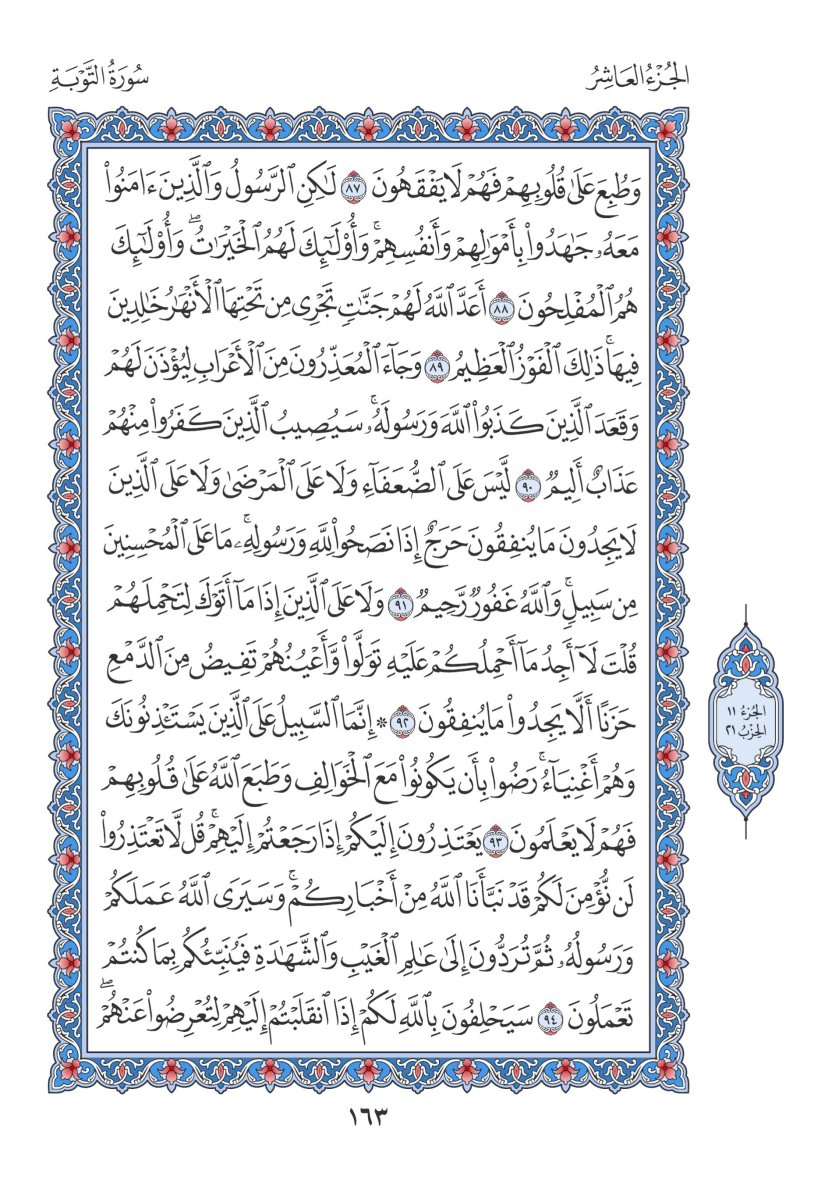 الجُزْءُ العَاشِرُ
سُورَةُ التَّوْبَةِ
وَطُبِعَ عَلَىٰ قُلُوبِهِمْ فَهُمْ لَا يَفْقَهُونَ ٨٧ لَٰكِنِ ٱلرَّسُولُ وَٱلَّذِينَ ءَامَنُواْ
مَعَهُۥ جَٰهَدُواْ بِأَمْوَٰلِهِمْ وَأَنفُسِهِمْۚ وَأُوْلَٰٓئِكَ لَهُمُ ٱلْخَيْرَٰتُۖ وَأُوْلَٰٓئِكَ
هُمُ ٱلْمُفْلِحُونَ ٨٨ أَعَدَّ ٱللَّهُ لَهُمْ جَنَّٰتٍ تَجْرِى مِن تَحْتِهَا ٱلْأَنْهَٰرُ خَٰلِدِينَ
فِيهَاۚ ذَٰلِكَ ٱلْفَوْزُ ٱلْعَظِيمُ ٨٩ وَجَآءَ ٱلْمُعَذِّرُونَ مِنَ ٱلْأَعْرَابِ لِيُؤْذَنَ لَهُمْ
وَقَعَدَ ٱلَّذِينَ كَذَبُواْ ٱللَّهَ وَرَسُولَهُۥۚ سَيُصِيبُ ٱلَّذِينَ كَفَرُواْ مِنْهُمْ
عَذَابٌ أَلِيمٌ ٩٠ لَّيْسَ عَلَى ٱلضُّعَفَآءِ وَلَا عَلَى ٱلْمَرْضَىٰ وَلَا عَلَى ٱلَّذِينَ
لَا يَجِدُونَ مَا يُنفِقُونَ حَرَجٌ إِذَا نَصَحُواْ لِلَّهِ وَرَسُولِهِۦۚ مَا عَلَى ٱلْمُحْسِنِينَ
مِن سَبِيلٍۚ وَٱللَّهُ غَفُورٌ رَّحِيمٌ ٩١ وَلَا عَلَى ٱلَّذِينَ إِذَا مَآ أَتَوْكَ لِتَحْمِلَهُمْ
قُلْتَ لَآ أَجِدُ مَآ أَحْمِلُكُمْ عَلَيْهِ تَوَلَّواْ وَّأَعْيُنُهُمْ تَفِيضُ مِنَ ٱلدَّمْعِ
حَزَنًا أَلَّا يَجِدُواْ مَا يُنفِقُونَ ٩٢ ۞ إِنَّمَا ٱلسَّبِيلُ عَلَى ٱلَّذِينَ يَسْتَـْٔذِنُونَكَ
وَهُمْ أَغْنِيَآءُۚ رَضُواْ بِأَن يَكُونُواْ مَعَ ٱلْخَوَالِفِ وَطَبَعَ ٱللَّهُ عَلَىٰ قُلُوبِهِمْ
فَهُمْ لَا يَعْلَمُونَ ٩٣ يَعْتَذِرُونَ إِلَيْكُمْ إِذَا رَجَعْتُمْ إِلَيْهِمْۚ قُل لَّا تَعْتَذِرُواْ
لَن نُّؤْمِنَ لَكُمْ قَدْ نَبَّأَنَا ٱللَّهُ مِنْ أَخْبَارِكُمْۚ وَسَيَرَى ٱللَّهُ عَمَلَكُمْ
وَرَسُولُهُۥ ثُمَّ تُرَدُّونَ إِلَىٰ عَٰلِمِ ٱلْغَيْبِ وَٱلشَّهَٰدَةِ فَيُنَبِّئُكُم بِمَا كُنتُمْ
تَعْمَلُونَ ٩٤ سَيَحْلِفُونَ بِٱللَّهِ لَكُمْ إِذَا ٱنقَلَبْتُمْ إِلَيْهِمْ لِتُعْرِضُواْ عَنْهُمْۖ
الجُزْءُ ١١
الحِزْبُ ٢١
١٦٣